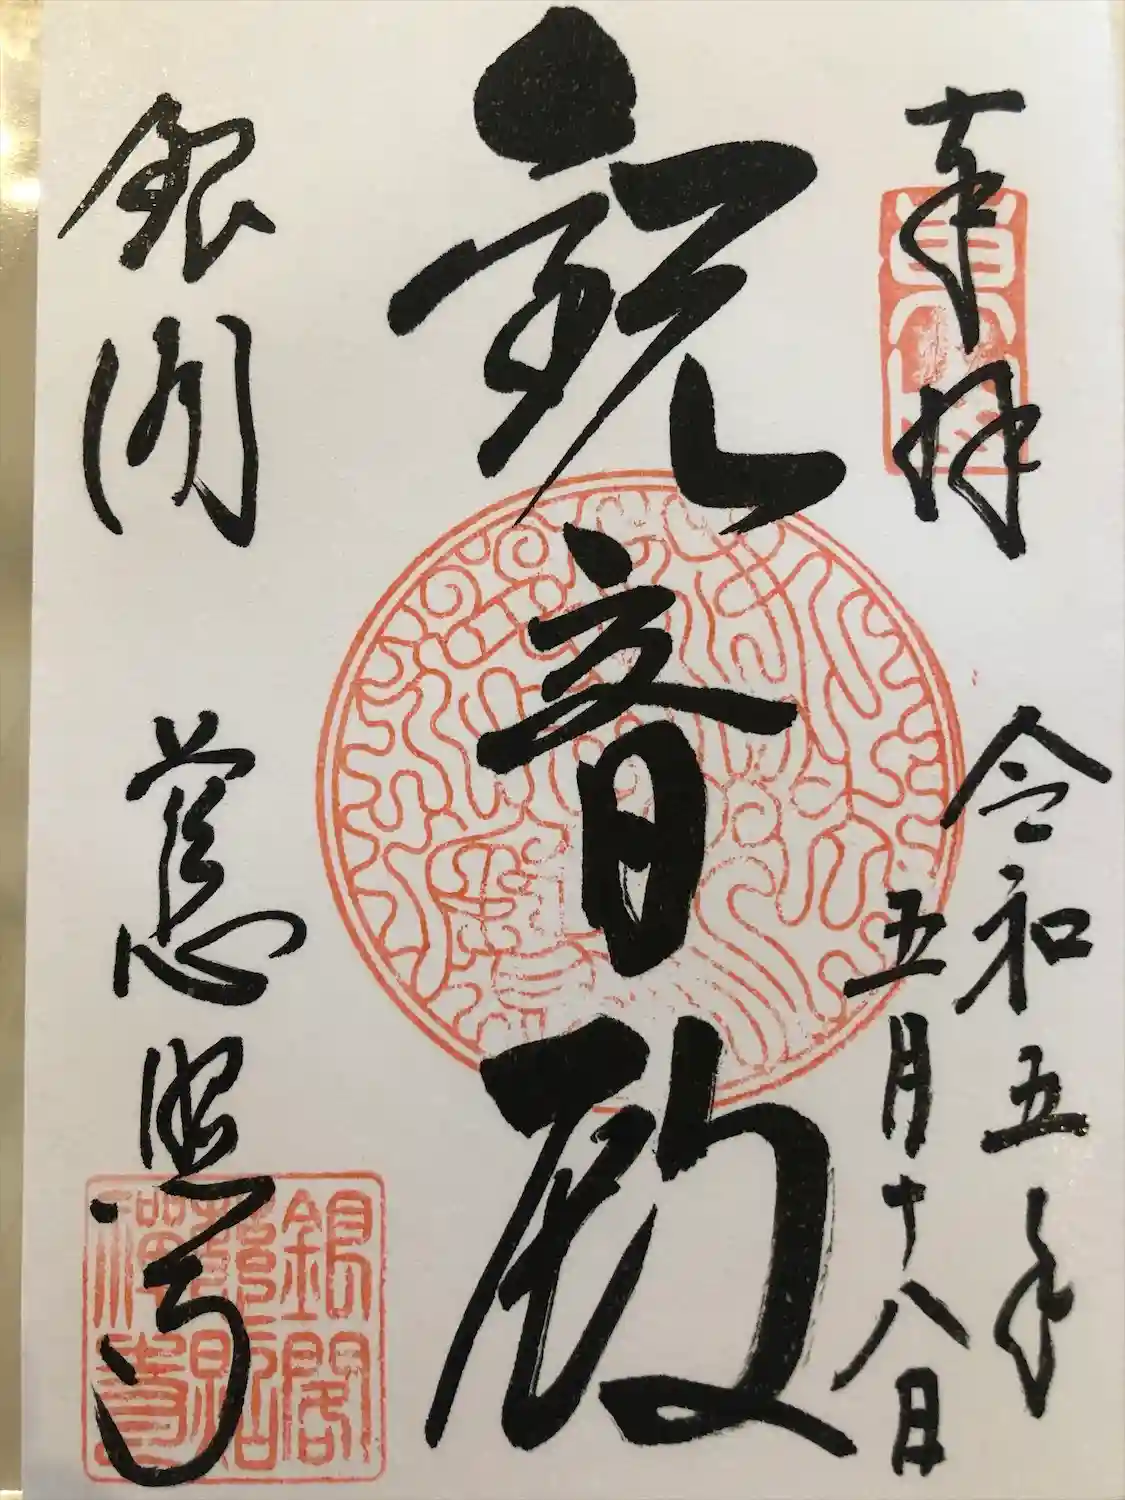 奉拝
令和五年
五月十八日
観音殿
銀閣 慈照寺
銀閣慈照禅寺